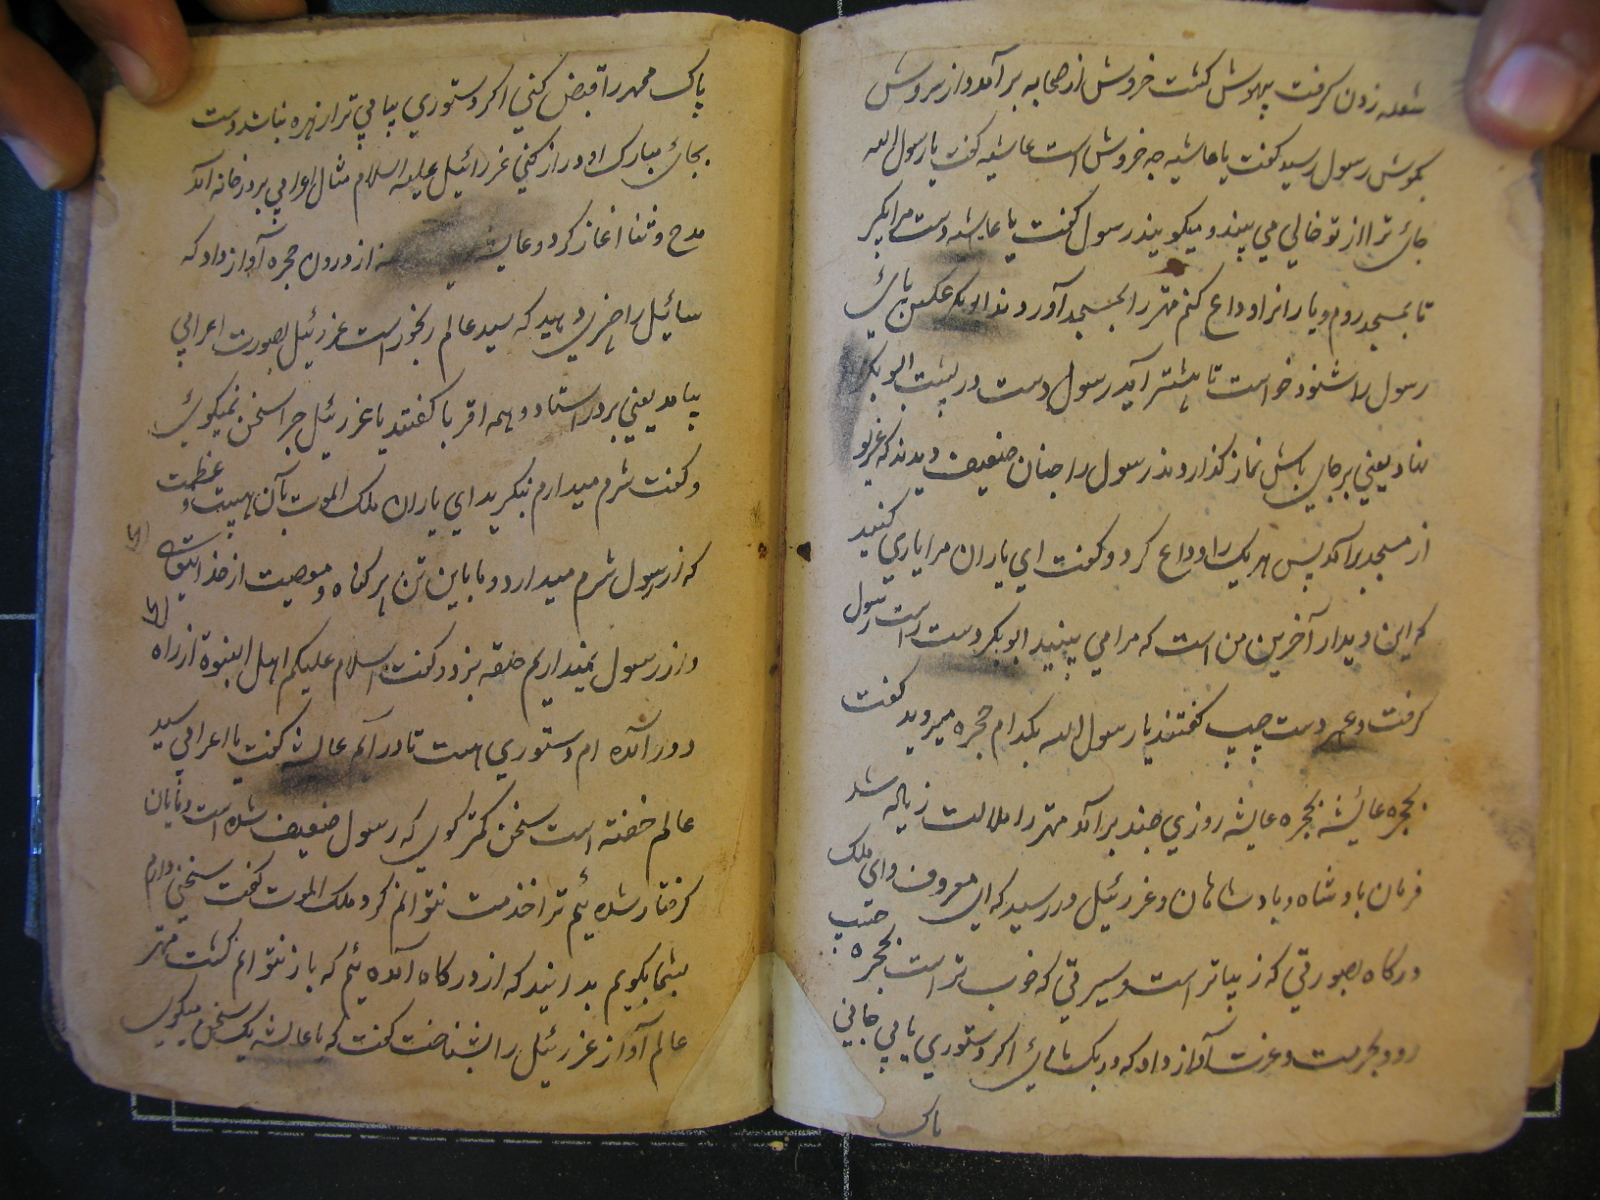 شعله زدن گرفت بیهوش گشت خروش از صحابه بر آمد و از خروش
بگوش رسول رسید گفت یا عایشه چه خروش است عایشه گفت یا رسول الله
جای ترا از تو خالی می بینند و میگویند رسول گفت یا عایشه دست مرا بگیر
تا بمسجد روم و یارانرا وداع کنم مهتر را بمسجد آوردند ابوبکر پای
رسول را شنود خواست تا پیشتر آید رسول دست در پشت ابوبکر
نهاد یعنی بر جای باش نماز گذاردند رسول را چنان ضعیف دیدند که غریو
از مسجد بر آمد پس هر یک را وداع کرد و گفت ای یاران مرا یاری کنید
که این دیدار آخرین من است که مرا می بینید ابوبکر دست راست رسول
گرفت و عمر دست چپ گفتند یا رسول الله بکدام حجره میروید گفت
بحجره عایشه بحجره عایشه روزی چند بر آمد مهتر را ملالت زیاده شد
فرمان بادشاه بادشاهان و عزرئیل در رسید که ای معروف و ای ملک
درگاه بصورتی که زیباتر است و سیرتی که خوب تر است بحجره حبیب
رو و بحرمت و عزت آواز داد که در بک نامی اگر دستوری یابی جانی
پاک
پاک محمد را قبض کنی اگر دستوری بیابی ترا زهره نباشد دست
بجان مبارک او دراز کنی عزرائیل علیه السلام مثال اعرابی بر در خانه آمد
مدح و ثنا آغاز کرد و عایشه از درون حجره آواز داد که
سائیل را چیزی دهید که سید عالم رنجور است عزرئیل بصورت اعرابی
بیامد یعنی بر در استاد و همه اقربا گفتند یا عزرئیل چرا سخن نمیگوی
و گفت شرم میدارم بنگرید ای یاران ملک الموت بآن هیبت و عظمت
که از رسول شرم میدارد و ما باین تن پر گناه و معصیت از خدایتعالی
و از رسول نمیداریم حلقه بزد و گفت السلام علیکم اهل النبوة از راه
دور آمده ام دستوری هست تا در آیم عایشه گفت یا اعرابی سید
عالم خفته است سخن کمتر گوی که رسول ضعیف شده است و مایان
گرفتار شده ئیم ترا خدمت نتوانم کرد ملک الموت گفت سخنی دارم
بشما بگویم بدانید که از درگاه آمده ئیم که باز نتوانم گشت مهتر
عالم آواز عزرئیل را بشناخت گفت که یا عایشه یک سخن میگوی